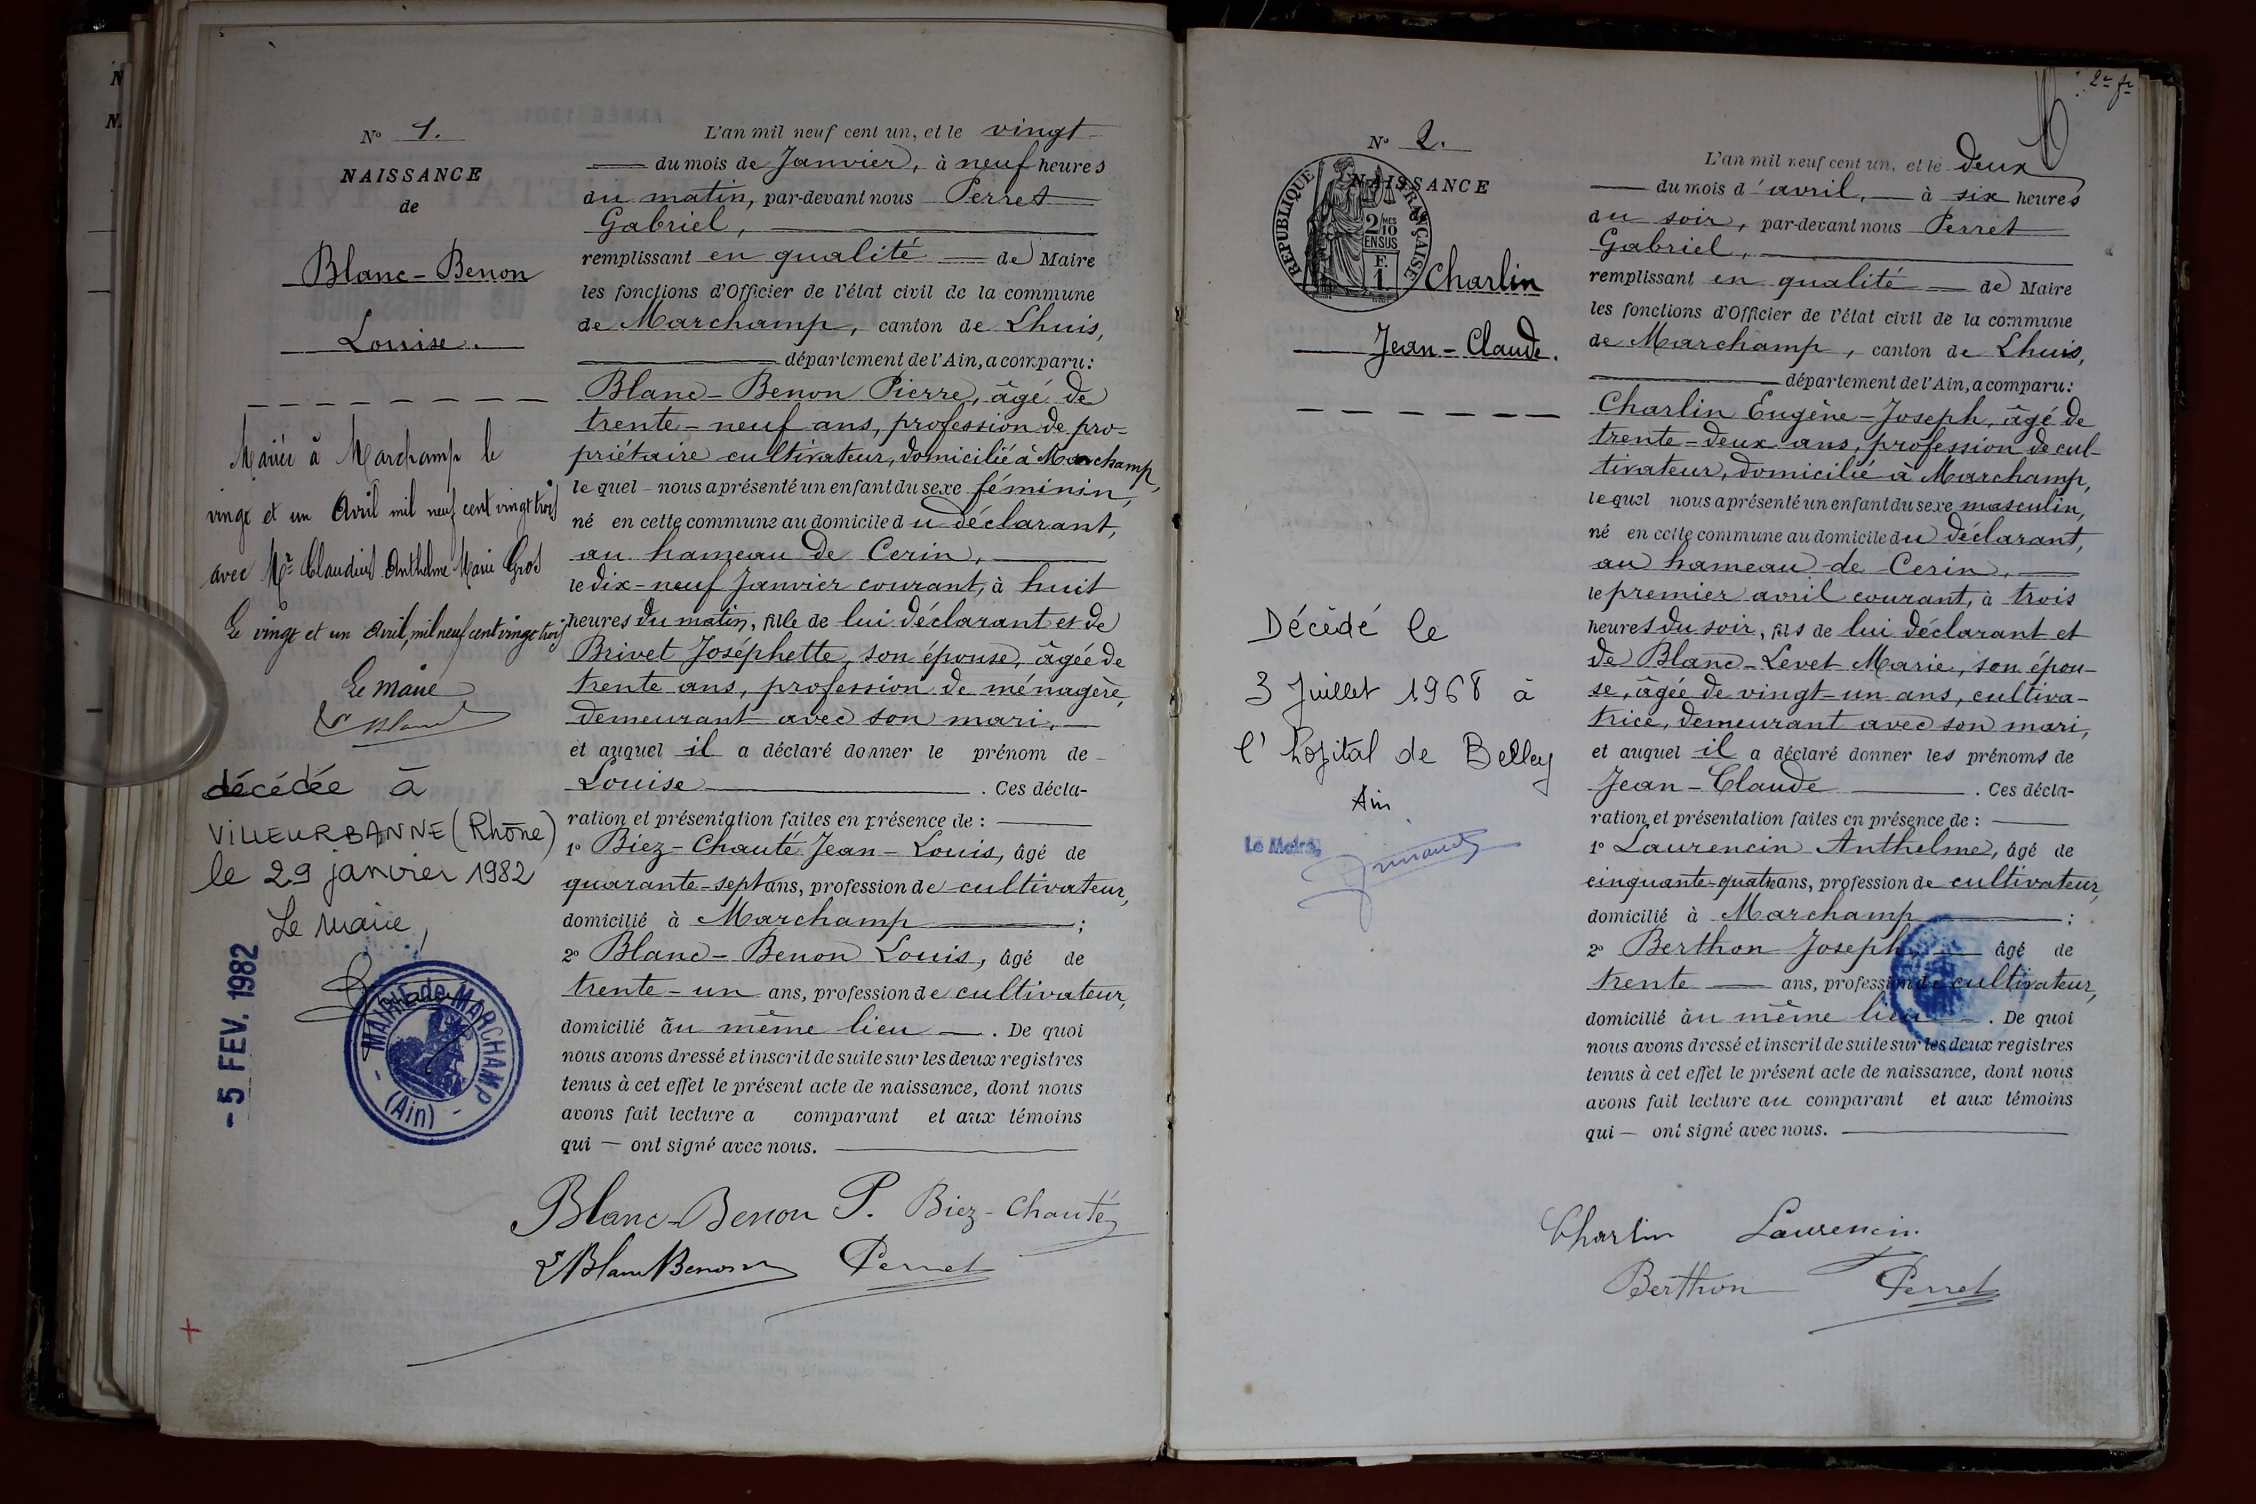 N
N.
N° 1.
NAISSANCE
de
Blanc-Benon
Louise.
Mariée à Marchamp le
vingt et un Avril mil neuf cent vingt trois
avec Mr Claudius Anthelme Marie Gros
Le vingt et un Avril, mil neuf cent vingt trois
Le Maire
décédée à
VILLEURBANNE (Rhône)
le 29 janvier 1982
Le Maire,
- 5 FEV. 1982
MAIRIE de MARCHAMP
- (Ain) -
L'an mil neuf cent un, et le vingt
du mois de Janvier, à neuf heures
du matin, par-devant nous Perret
Gabriel,
remplissant en qualité de Maire
les fonctions d'Officier de l'état civil de la commune
de Marchamp, canton de Lhuis,
département de l'Ain, a comparu:
Blanc-Benon Pierre, âgé de
trente-neuf ans, profession de pro-
priétaire cultivateur, domicilié à Marchamp,
le quel nous a présenté un enfant du sexe féminin,
né en cette commune au domicile du déclarant,
au hameau de Cerin,
le dix-neuf Janvier courant, à huit
heures du matin, fille de lui déclarant et de
Brivet Joséphette, son épouse, âgée de
trente ans, profession de ménagère,
demeurant avec son mari,
et auquel il a déclaré donner le prénom de
Louise . Ces décla-
ration et présentation faites en présence de :
1° Biez-Chauté Jean-Louis, âgé de
quarante-sept ans, profession de cultivateur,
domicilié à Marchamp ;
2° Blanc-Benon Louis, âgé de
trente-un ans, profession de cultivateur,
domicilié au même lieu . De quoi
nous avons dressé et inscrit de suite sur les deux registres
tenus à cet effet le présent acte de naissance, dont nous
avons fait lecture a comparant et aux témoins
qui — ont signé avec nous.
Blanc-Benon P. Biez-Chauté
Ls Blanc Benon Perret
2e fe
N° 2.
NAISSANCE
REPUBLIQUE FRANÇAISE
2/10 MES
EN SUS
F.
1
Charlin
Jean-Claude.
Décédé le
3 Juillet 1968 à
l'hopital de Belley
Ain
Le Maire,
L'an mil neuf cent un, et le deux
du mois d'avril, à six heures
du soir, par-devant nous Perret
Gabriel,
remplissant en qualité de Maire
les fonctions d'Officier de l'état civil de la commune
de Marchamp, canton de Lhuis,
département de l'Ain, a comparu:
Charlin Eugène-Joseph, âgé de
trente-deux ans, profession de cul-
tivateur, domicilié à Marchamp,
lequel nous a présenté un enfant du sexe masculin,
né en cette commune au domicile du déclarant,
au hameau de Cerin,
le premier avril courant, à trois
heures du soir, fils de lui déclarant et
de Blanc-Levet Marie, son épou-
se, âgée de vingt-un ans, cultiva-
trice, demeurant avec son mari,
et auquel il a déclaré donner les prénoms de
Jean-Claude . Ces décla-
ration et présentation faites en présence de :
1° Laurencin Anthelme, âgé de
cinquante-quatre ans, profession de cultivateur,
domicilié à Marchamp ;
2° Berthon Joseph, âgé de
trente ans, profession de cultivateur,
domicilié au même lieu . De quoi
nous avons dressé et inscrit de suite sur les deux registres
tenus à cet effet le présent acte de naissance, dont nous
avons fait lecture au comparant et aux témoins
qui — ont signé avec nous.
Charlin Laurencin
Berthon Perret